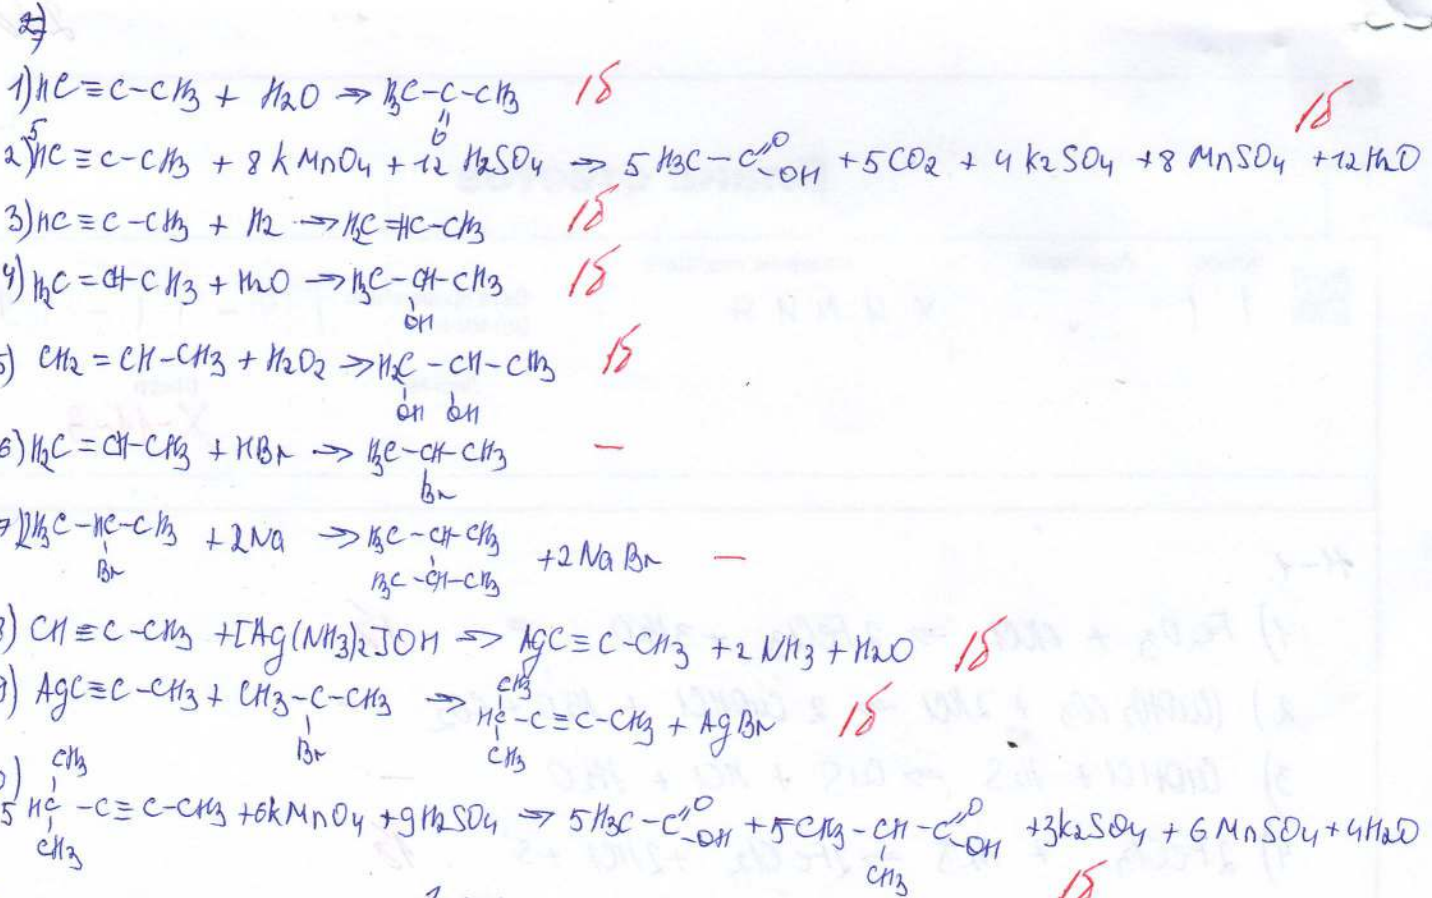 2)
1) HC≡C-CH3 + H2O → H3C-C-CH3 1б
O
2) 5HC≡C-CH3 + 8KMnO4 + 12H2SO4 → 5H3C-C=O-OH + 5CO2 + 4K2SO4 + 8MnSO4 + 12H2O 1б
3) HC≡C-CH3 + H2 → H2C=HC-CH3 1б
4) H2C=CH-CH3 + H2O → H3C-CH-CH3 1б
OH
5) CH2=CH-CH3 + H2O2 → H2C-CH-CH3 1б
OH OH
6) H2C=CH-CH3 + HBr → H3C-CH-CH3 —
Br
7) 2H3C-HC-CH3 + 2Na → H3C-CH-CH3 + 2NaBr —
Br H3C-CH-CH3
8) CH≡C-CH3 + [Ag(NH3)2]OH → AgC≡C-CH3 + 2NH3 + H2O 1б
CH3
9) AgC≡C-CH3 + CH3-C-CH3 → HC-C≡C-CH3 + AgBr 1б
Br CH3
CH3
0) 5HC-C≡C-CH3 + 6KMnO4 + 9H2SO4 → 5H3C-C=O-OH + 5CH3-CH-C=O-OH + 3K2SO4 + 6MnSO4 + 4H2O
CH3 CH3 1б